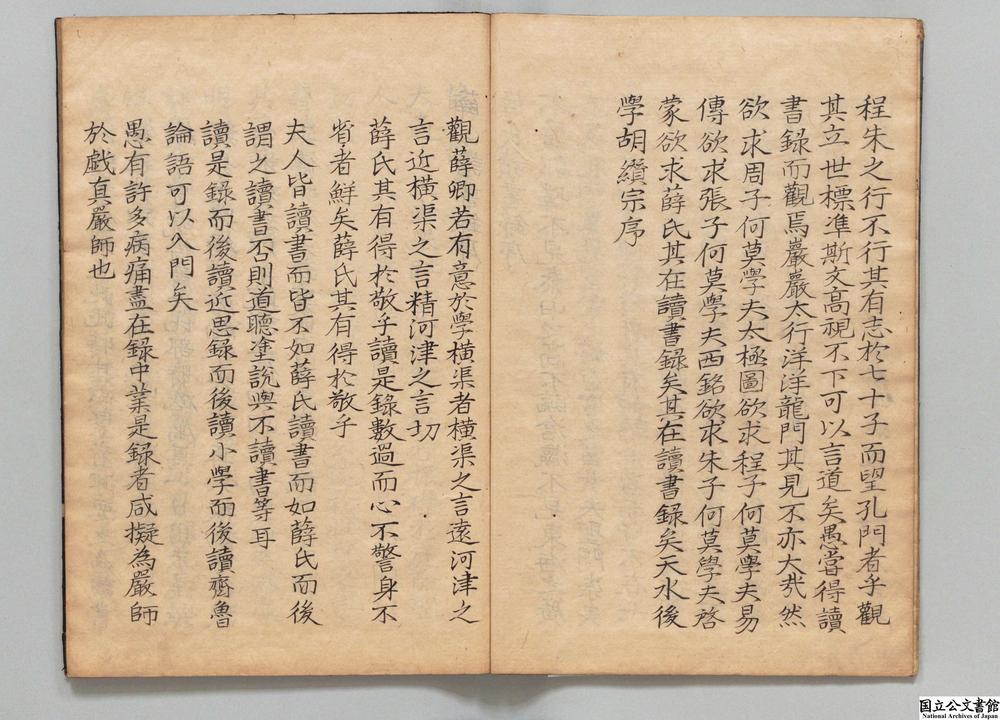 程朱之行不行其有志於七十子而望孔門者乎觀
其立世標準斯文高視不下可以言道矣愚嘗得讀
書録而觀焉巖巖太行洋洋龍門其見不亦大㢤然
欲求周子何莫學夫太極圖欲求程子何莫學夫易
傳欲求張子何莫學夫西銘欲求朱子何莫學夫啓
蒙欲求薛氏其在讀書録矣其在讀書録矣天水後
學胡纘宗序
觀薛卿若有意於學橫渠者橫渠之言遠河津之
言近橫渠之言精河津之言切
薛氏其有得於敬乎讀是録數過而心不警身不
省者鮮矣薛氏其有得於敬乎
夫人皆讀書而皆不如薛氏讀書而如薛氏而後
謂之讀書否則道聽塗說與不讀書等耳
讀是録而後讀近思録而後讀小學而後讀齊魯
論語可以入門矣
愚有許多病痛盡在録中業是録者咸擬為嚴師
於戲真嚴師也
国立公文書館
National Archives of Japan